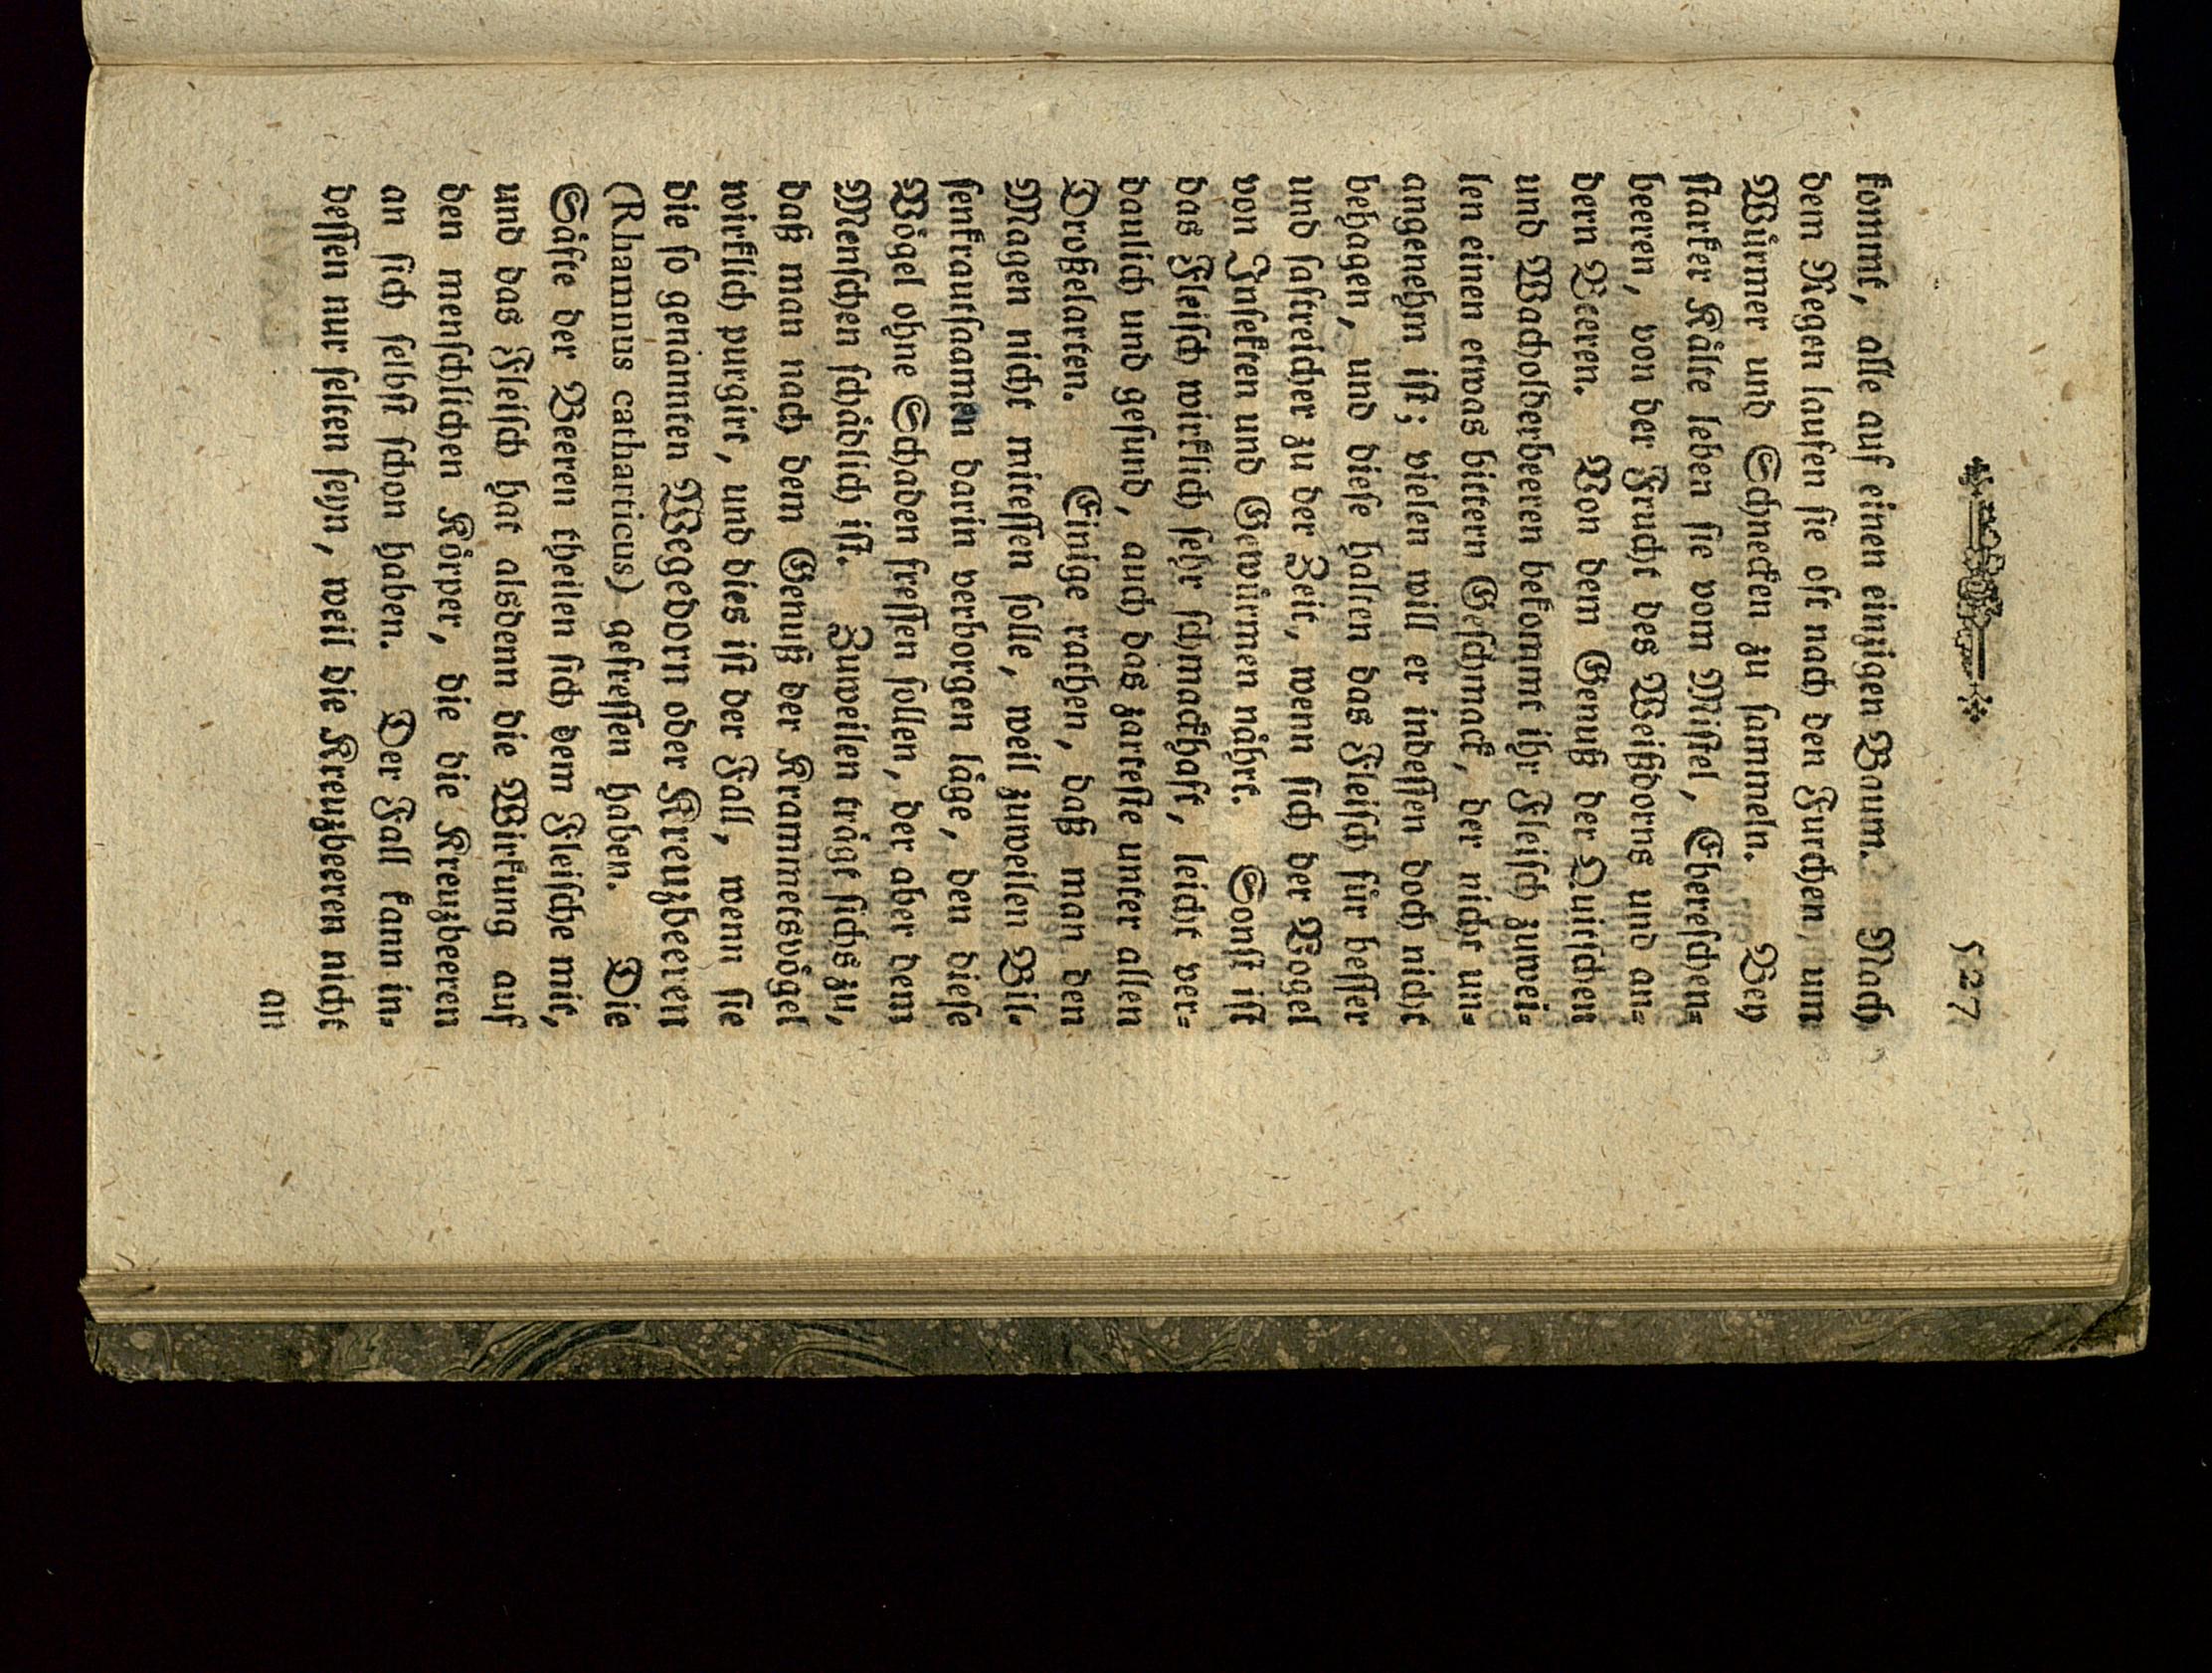 527
kommt, alle auf einen einzigen Baum. Nach
dem Regen laufen sie oft nach den Furchen, um
Würmer und Schnecken zu sammeln. Bey
starker Kälte leben sie vom Mistel, Ebereschen-
beeren, von der Frucht des Weißdorns und an-
dern Beeren. Von dem Genuß der Quitschen
und Wacholderbeeren bekommt ihr Fleisch zuwei-
len einen etwas bittern Geschmack, der nicht un-
angenehm ist; vielen will er indessen doch nicht
behagen, und diese halten das Fleisch für besser
und saftreicher zu der Zeit, wenn sich der Vogel
von Insekten und Gewürmen nährt. Sonst ist
das Fleisch wirklich sehr schmackhaft, leicht ver-
daulich und gesund, auch das zarteste unter allen
Droßelarten. Einige rathen, daß man den
Magen nicht mitessen solle, weil zuweilen Bil-
senkrautsaamen darin verborgen läge, den diese
Vögel ohne Schaden fressen sollen, der aber dem
Menschen schädlich ist. Zuweilen trägt sichs zu,
daß man nach dem Genuß der Krammetsvögel
wirklich purgirt, und dies ist der Fall, wenn sie
die so genannten Wegedorn oder Kreuzbeeren
(Rhamnus catharticus) gefressen haben. Die
Säfte der Beeren theilen sich dem Fleische mit,
und das Fleisch hat alsdenn die Wirkung auf
den menschlichen Körper, die die Kreuzbeeren
an sich selbst schon haben. Der Fall kann in-
dessen nur selten seyn, weil die Kreuzbeeren nicht
an